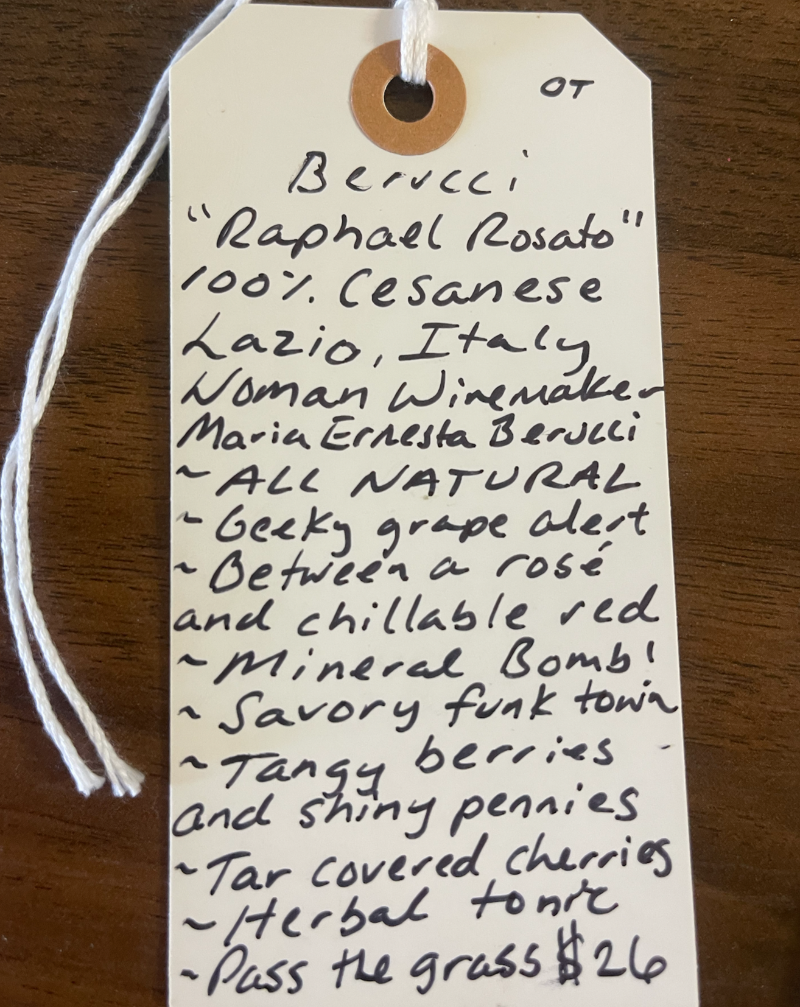 OT
Berucci
"Raphael Rosato"
100% Cesanese
Lazio, Italy
Woman Winemaker
Maria Ernesta Berucci
~ ALL NATURAL
~ Geeky grape alert
~ Between a rosé
and chillable red
~ Mineral Bomb!
~ Savory funk town
~ Tangy berries
and shiny pennies
~ Tar covered cherries
~ Herbal tonic
~ Pass the grass $26